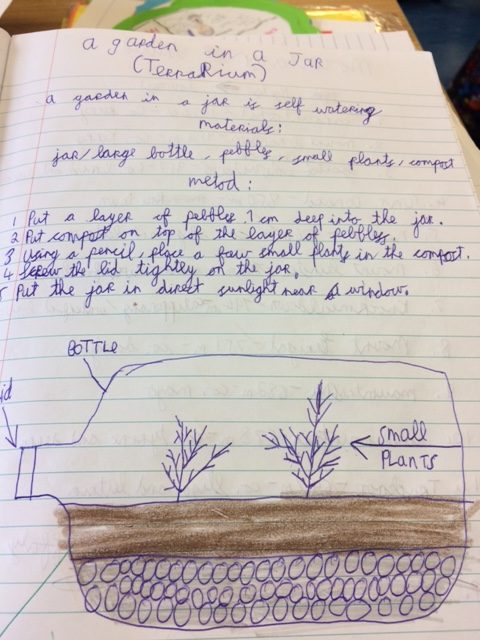 a garden in a Jar
(Terrarium)
a garden in a jar is self watering
materials:
jar/large bottle, pebbles, small plants, compost
metod:
1 Put a layer of pebbles 1 cm deep into the jar.
2 Put compost on top of the layer of pebbles
3 using a pencil, place a faw small plants in the compost.
4 screw the lid tightly on the jar.
5 Put the jar in direct sunlight near a window.
BOTTLE
lid
small
PLANTS